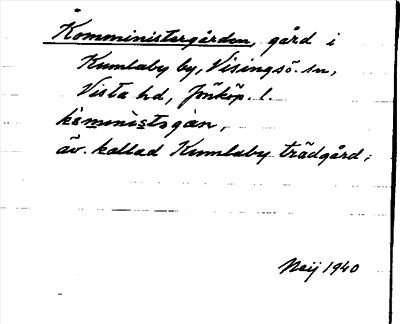 Komministergården, gård i
Kumlaby by, Visingsö sn,
Vista hd, Jönköp. l.
kòminìstəgan,
äv. kallad Kumlaby trädgård.
Neij 1940